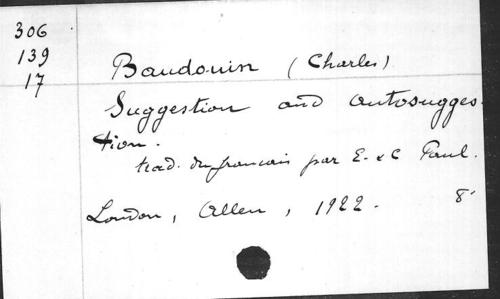 306
139
17
Baudouin (Charles)
Suggestion and autosugges-
tion.
trad. du francais par E. & C Paul.
London, Allen, 1922. 8°